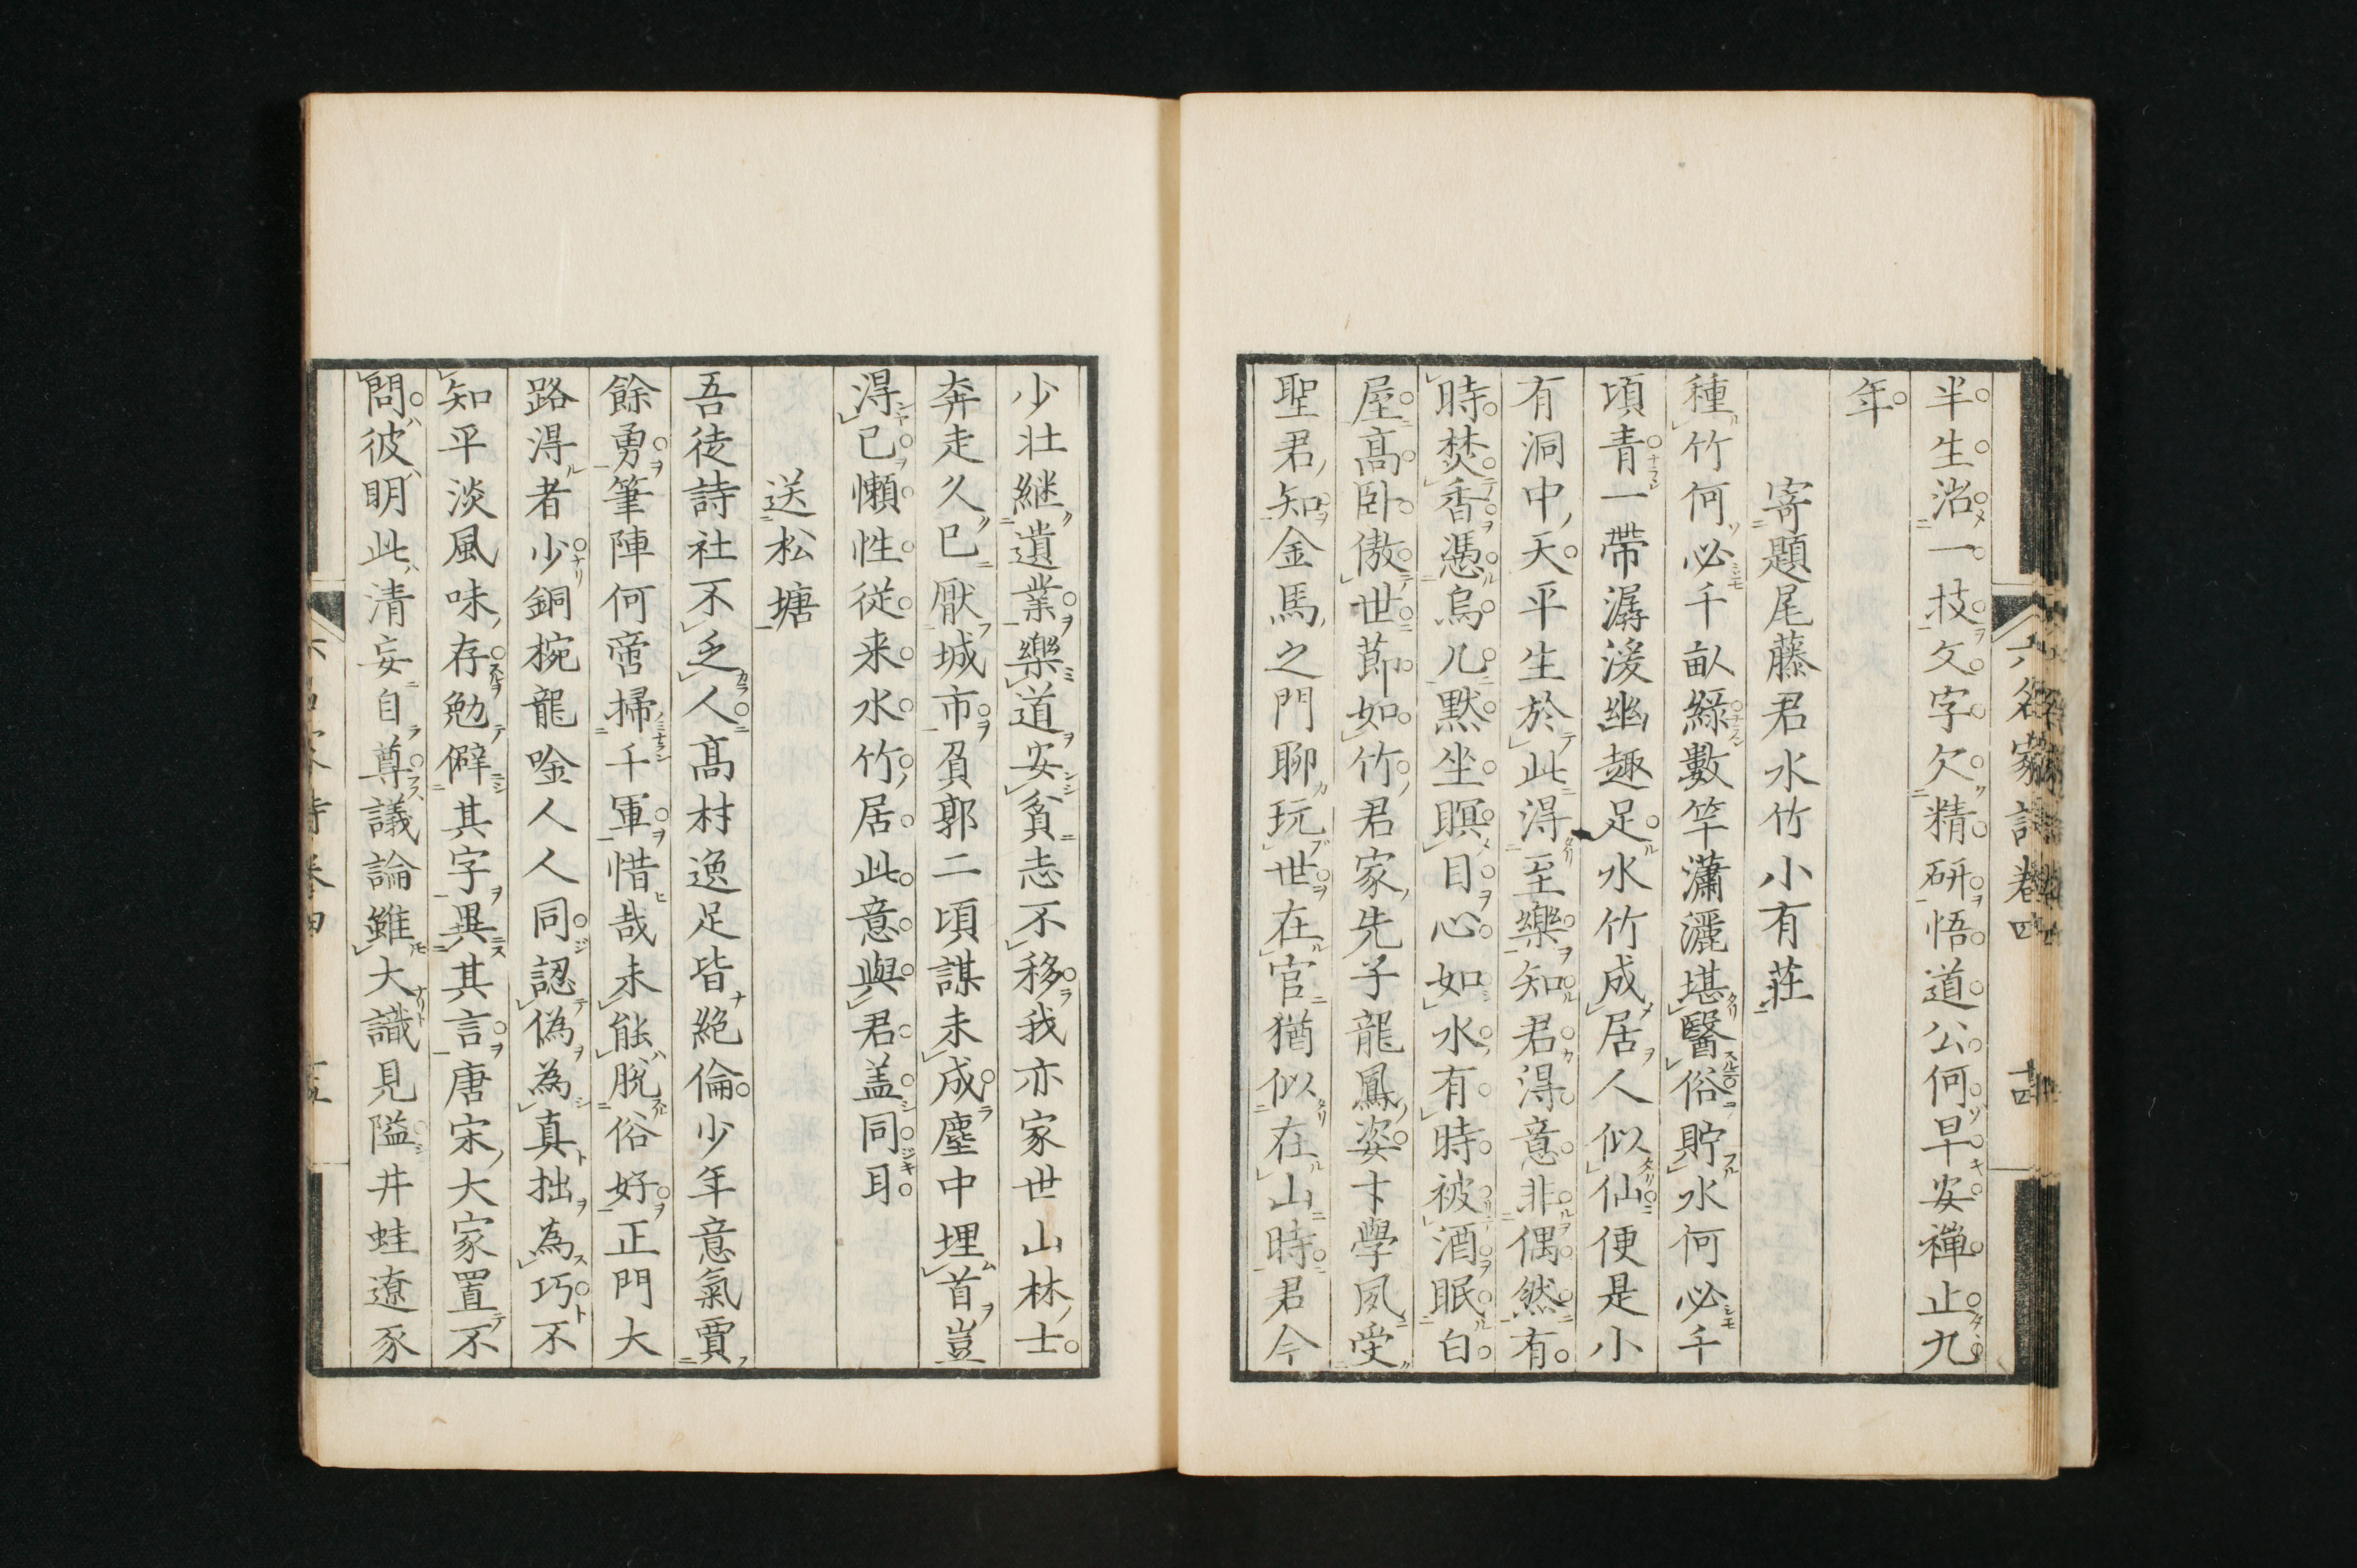 六名家詩卷四
半生治一技文字欠精研悟道公何早安禪止九
年
寄題尾藤君水竹小有莊
種竹何必千畝綠數竿瀟灑堪醫俗貯水何必千
頃青一帶潺湲幽趣足水竹成居人似仙便是小
有洞中天平生於此得至樂知君得意非偶然有
時焚香憑烏几默坐瞑目心如水有時被酒眠白
屋高卧傲世節如竹君家先子龍鳳姿卞學夙受
聖君知金馬之門聊玩世在官猶似在山時君今
少壯継遺業樂道安貧志不移我亦家世山林士
奔走久已厭城市負郭二頃謀未成塵中埋首豈
得已懶性従来水竹居此意與君盖同耳
送松塘
吾徒詩社不乏人高村逸足皆絶倫少年意氣賈
餘勇筆陣何啻掃千軍惜哉未能脫俗好正門大
路得者少銅椀龍唫人人同認偽為真拙為巧不
知平淡風味存勉僻其字異其言唐宋大家置不
問彼明此清妄自尊議論雖大識見隘井蛙遼豕